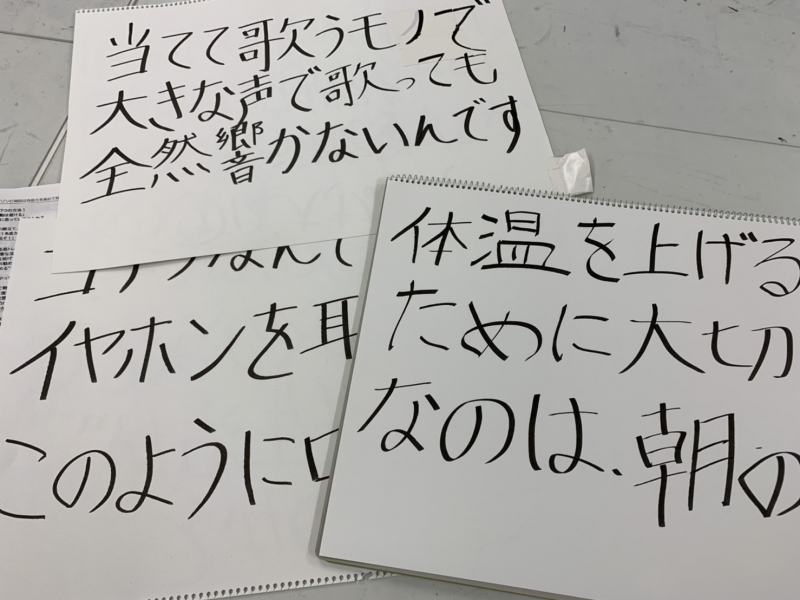 当てて歌うモノで
大きな声で歌っても
全然響かないんです
イヤホンを耳
このように口
体温を上げる
ために大切
なのは、朝の